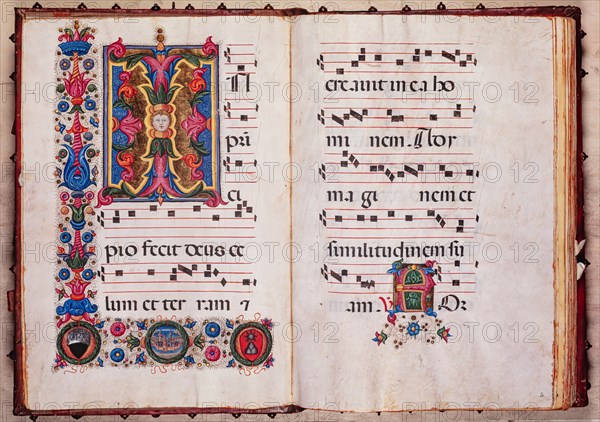 I N
pri
ci
pio fecit deus ce
lum et ter ram 7
creauit in ea ho
mi nem. Ad y
ma gi nem et
similitudinem su
am. V OR
PHOTO 12